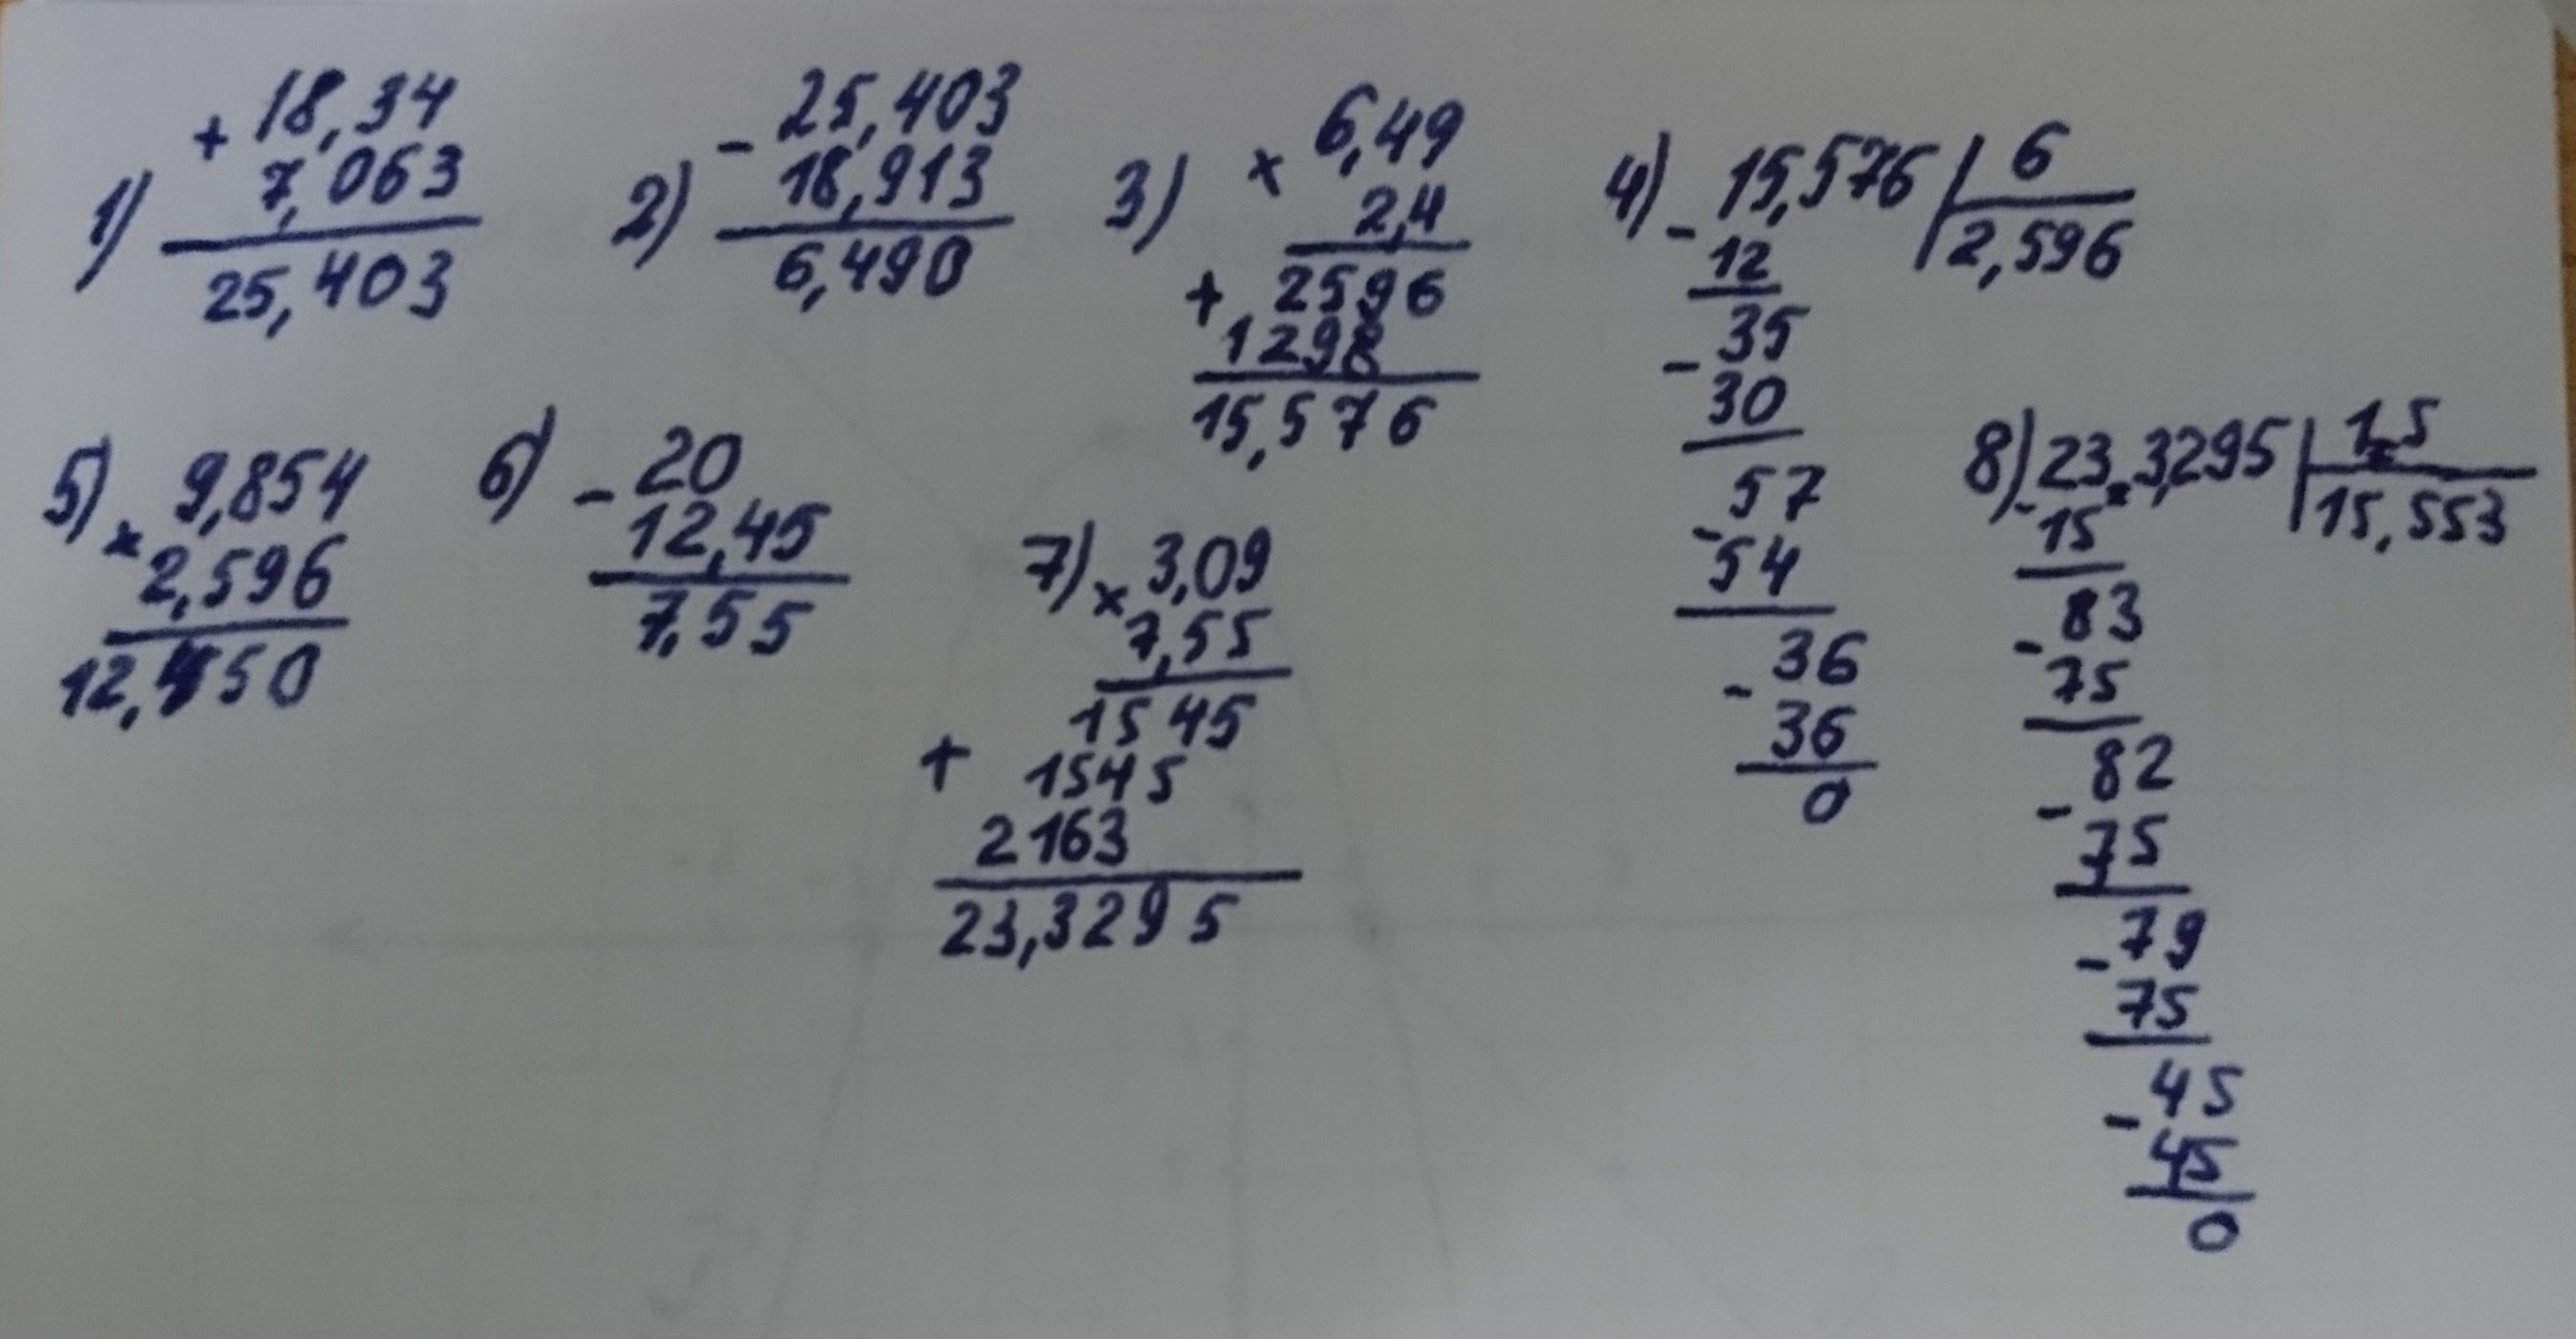 1) + 18,34
7,063
25,403
2) - 25,403
18,913
6,490
3) × 6,49
2,4
+ 2596
1298
15,576
4) - 15,576 | 6
12 | 2,596
- 35
30
- 57
54
- 36
36
0
5) × 9,854
2,596
12,450
6) - 20
12,45
7,55
7) × 3,09
7,55
1545
+ 1545
2163
23,3295
8) - 23,3,295 | 1,5
15 | 15,553
- 83
75
- 82
75
- 79
75
- 45
45
0